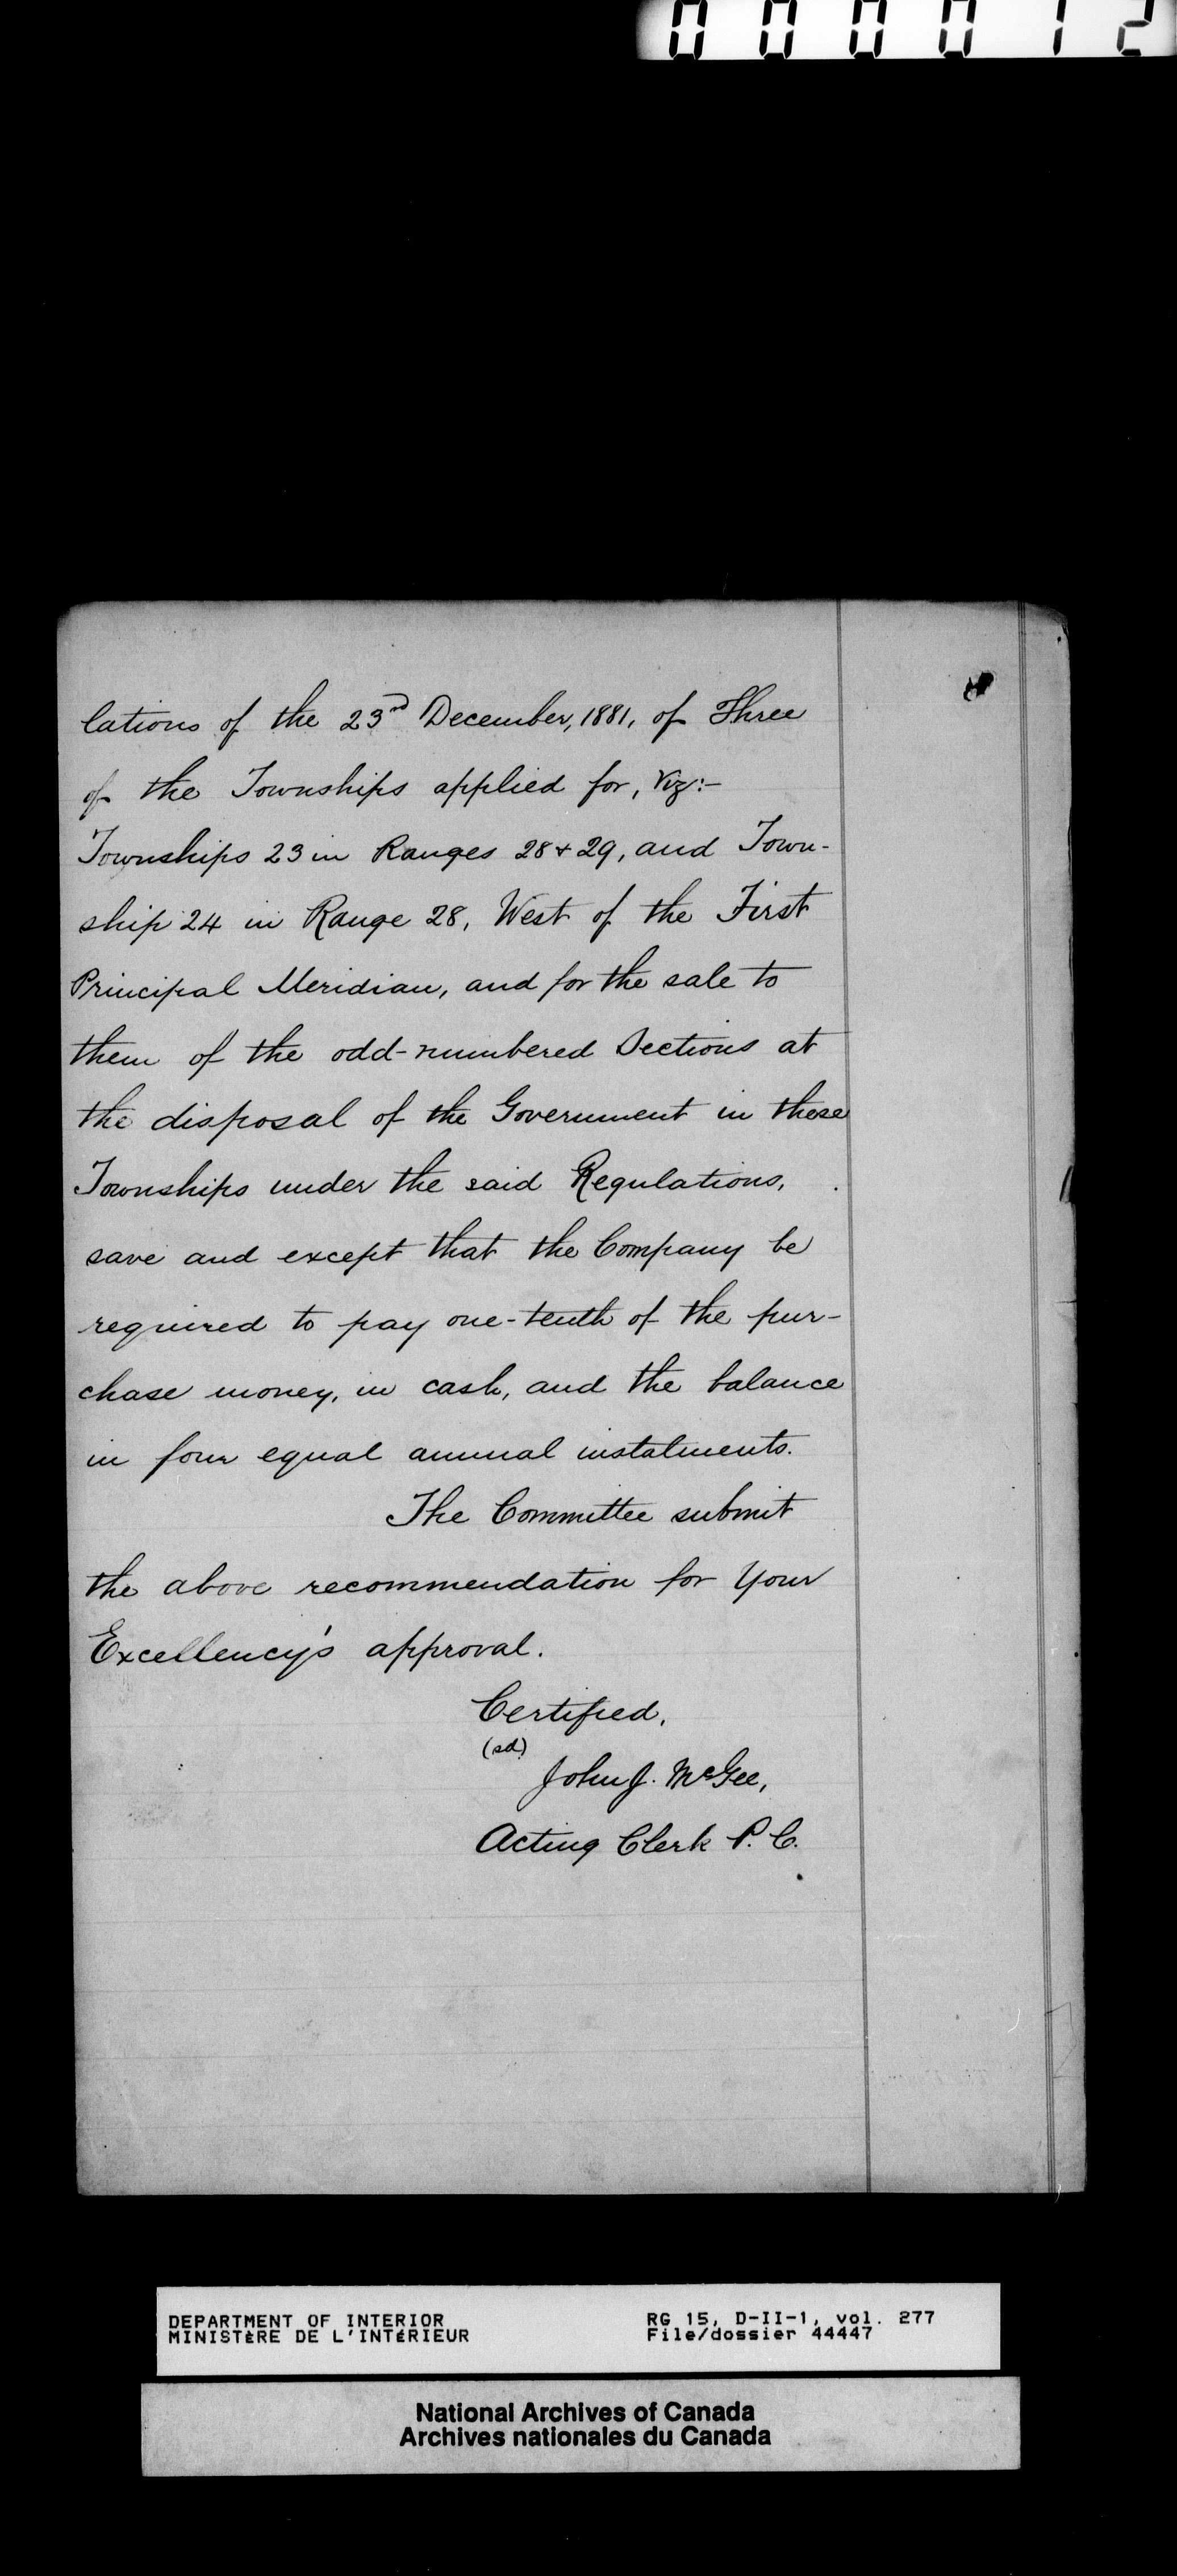 000012
lations of the 23rd December, 1881, of Three
of the Townships applied for, viz:-
Townships 23 in Ranges 28 & 29, and Town-
ship 24 in Range 28, West of the First
Principal Meridian, and for the sale to
them of the odd-numbered Sections at
the disposal of the Government in these
Townships under the said Regulations,
save and except that the Company be
required to pay one-tenth of the pur-
chase money, in cash, and the balance
in four equal annual instalments.
The Committee submit
the above recommendation for Your
Excellency's approval.
Certified,
(sd)
John J. McGee,
Acting Clerk P. C.
DEPARTMENT OF INTERIOR RG 15, D-II-1, vol. 277
MINISTÈRE DE L'INTÉRIEUR File/dossier 44447
National Archives of Canada
Archives nationales du Canada